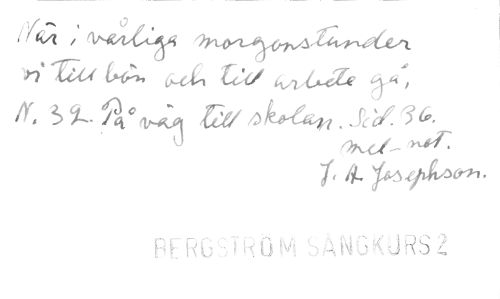 När i vårliga morgonstunder
vi till bön och till arbete gå,
N. 32. På väg till skolan. Sid. 36.
mel-not.
J. A. Josephson.
BERGSTRÖM SÅNGKURS 2